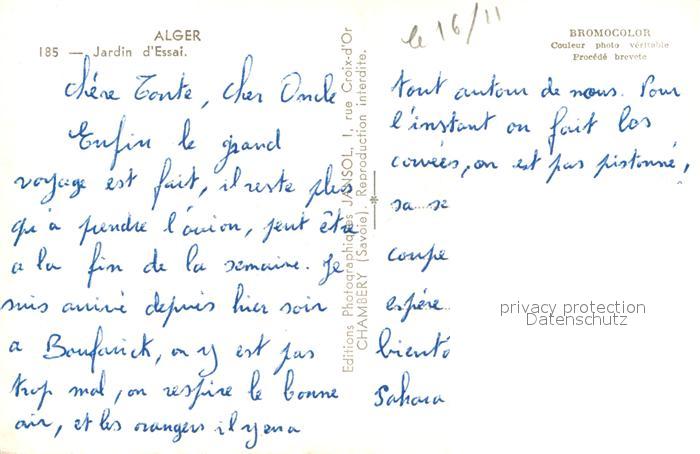 ALGER
185 — Jardin d'Essai.
le 16/11
BROMOCOLOR
Couleur photo véritable
Procédé breveté
chére Tante, cher Oncle
Enfin le grand
voyage est fait, il reste plus
qu'a prendre l'avion, peut être
a la fin de la semaine. Je
suis arrivé depuis hier soir
a Boufarick, on y est pas
trop mal, on respire le bonne
air, et les orangers il y en a
Editions Photographiques JANSOL, 1, rue Croix-d'Or
CHAMBÉRY (Savoie). Reproduction interdite.
tout autour de nous. Pour
l'instant on fait les
corvées, on est pas pistonné,
sa se
coupe
espére
biento
Sahara
privacy protection
Datenschutz